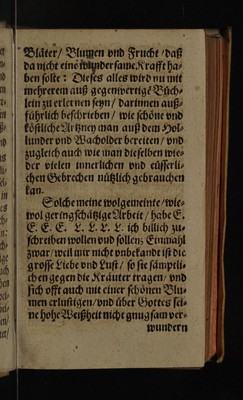 Bläter/ Blumen vnd Frucht/ daß
da nicht eine wundersame Krafft ha-
ben solte: Dieses alles wird nu mit
mehrerem auß gegenwertigē Büch-
lein zu erlernen seyn/ darinnen auß-
führlich beschrieben/ wie schöne vnd
köstliche Artzney man auß dem Hol-
lunder vnd Wacholder bereiten/ vnd
zugleich auch wie man dieselben wie-
der vielen innerlichen vnd eüsserli-
chen Gebrechen nützlich gebrauchen
kan.
Solche meine wolgemeinte/ wie-
wol geringschätzige Arbeit/ habe E.
E. E. E. L. L. L. L. ich billich zu-
schreiben wollen vnd sollen; Einmahl
zwar/ weil mir nicht vnbekandt ist die
grosse Liebe vnd Lust/ so sie sämptli-
chen gegen die Kräuter tragen/ vnd
sich offt auch mit einer schönen Blu-
men erlustigen/ vnd über Gottes sei-
ne hohe Weißheit nicht gnugsam ver-
wundern